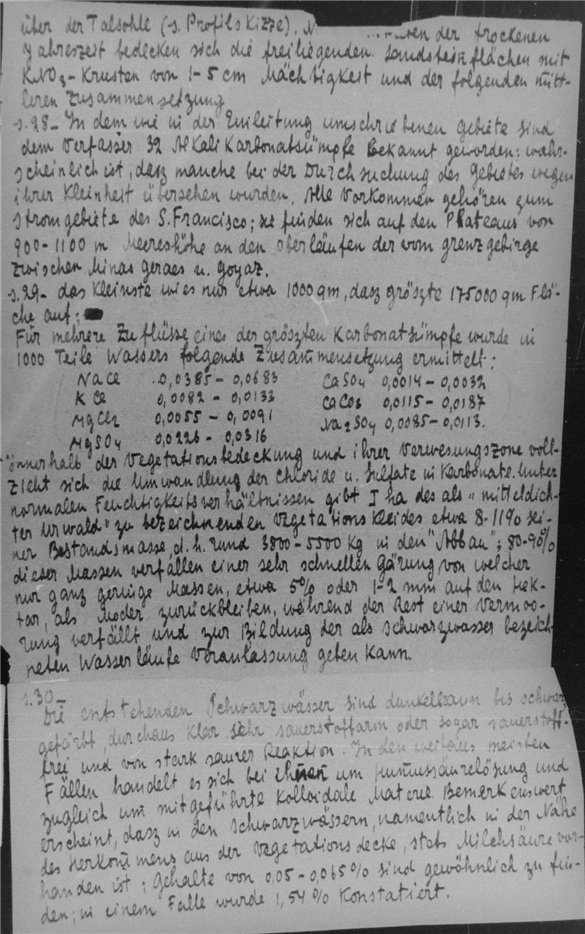 über der Talsohle (s. Profilskizze). der trockenen
Jahreszeit bedecken sich die freiliegenden Sandsteinflächen mit
KNO₃-Krusten von 1-5 cm Mächtigkeit und der folgenden mitt-
leren Zusammensetzung
s.28- In dem wie in der Einleitung umschriebenen Gebiete sind
dem Verfasser 32 Alkalikarbonatsümpfe bekannt geworden: wahr-
scheinlich ist, dasz manche bei der Durchsuchung des Gebietes wegen
ihrer Kleinheit übersehen wurden. Alle Vorkommen gehören zum
Stromgebiete des S. Francisco; sie finden sich auf den Plateaus von
900-1100 m Meereshöhe an den Oberläufen der vom grenzgebirge
zwischen Minas Geraes u. Goyaz.
s.29- das Kleinste wies nur etwa 1000 qm, dasz gröszte 175000 qm Flä-
che auf:
Für mehrere Zuflüsse eines der gröszten Karbonatsümpfe wurde in
1000 Teile Wassers folgende Zusammensetzung ermittelt:
NaCl 0,0385-0,0683 CaSO4 0,0014-0,0032
KCl 0,0082-0,0133 CaCO3 0,0115-0,0187
MgCl2 0,0055-0,0091 Na2SO4 0,0085-0,0113.
MgSO4 0,0226-0,0316
"innerhalb der Vegetationsbedeckung und ihrer Verwesungszone voll-
zieht sich die Umwandlung der Chloride u. Sulfate in Karbonate. Unter
normalen Feuchtigkeitsverhältnissen gibt 1 ha des als "mitteldich-
ter Urwald" zu bezeichnenden Vegetationskleides etwa 8-11% sei-
ner Bestandsmasse, d.h. rund 3800-5500 Kg in den "Abbau"; 80-90%
dieser Massen verfallen einer sehr schnellen Gärung von welcher
nur ganz geringe Massen, etwa 5% oder 1-2 mm auf den Hek-
tar, als Moder zurückbleiben, während der Rest einer Vermoo-
rung verfällt und zur Bildung der als Schwarzwasser bezeich-
neten Wasserläufe Veranlassung geben kann.
s.30-
Die entstehenden Schwarzwässer sind dunkelbraun bis schwarz
gefärbt, durchaus klar sehr sauerstoffarm oder sogar sauerstoff-
frei und von stark saurer Reaktion. In den weitaus meisten
Fällen handelt es sich bei ihnen um Humussäurelösung und
zugleich um mitgeführte Kolloidale Materie. Bemerkenswert
erscheint, dasz in den Schwarzwässern, namentlich in der Nähe
des Herkommens aus der Vegetationsdecke, stets Milchsäure vor-
handen ist: Gehalte von 0.05-0,065% sind gewöhnlich zu fin-
den; in einem Falle wurde 1,54% Konstatiert.